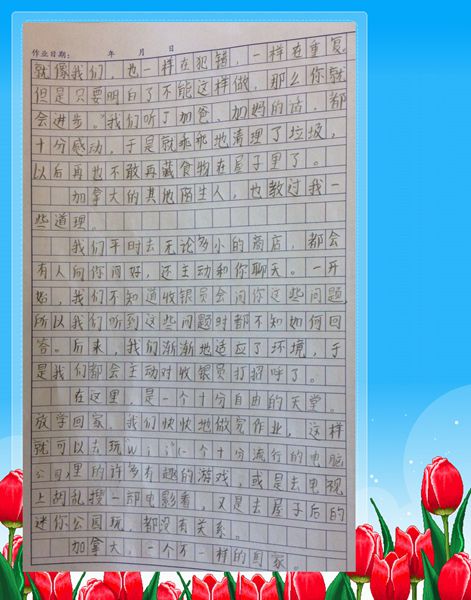 作业日期： 年 月 日
就像我们，也一样在犯错，一样在重复。
但是只要明白了不能这样做，那么你就
会进步。"我们听了加爸、加妈的话，都
十分感动，于是就乖乖地清理了垃圾，
以后再也不敢再藏食物在屋子里了。
加拿大的其他陌生人，也教过我一
些道理。
我们平时去无论多小的商店，都会
有人向你问好，还主动和你聊天。一开
始，我们不知道收银员会问你这些问题，
所以我们听到这些问题时都不知如何回
答。后来，我们渐渐地适应了环境，于
是我们都会主动对收银员打招呼了。
在这里，是一个十分自由的天堂。
放学回家，我们快快地做完作业，这样
就可以去玩wii（一个十分流行的电脑
里的许多有趣的游戏，或是去电视
上胡乱搜一部电影看，又是去屋子后的
迷你公园玩，都没有关系。
加拿大，一个不一样的国家。